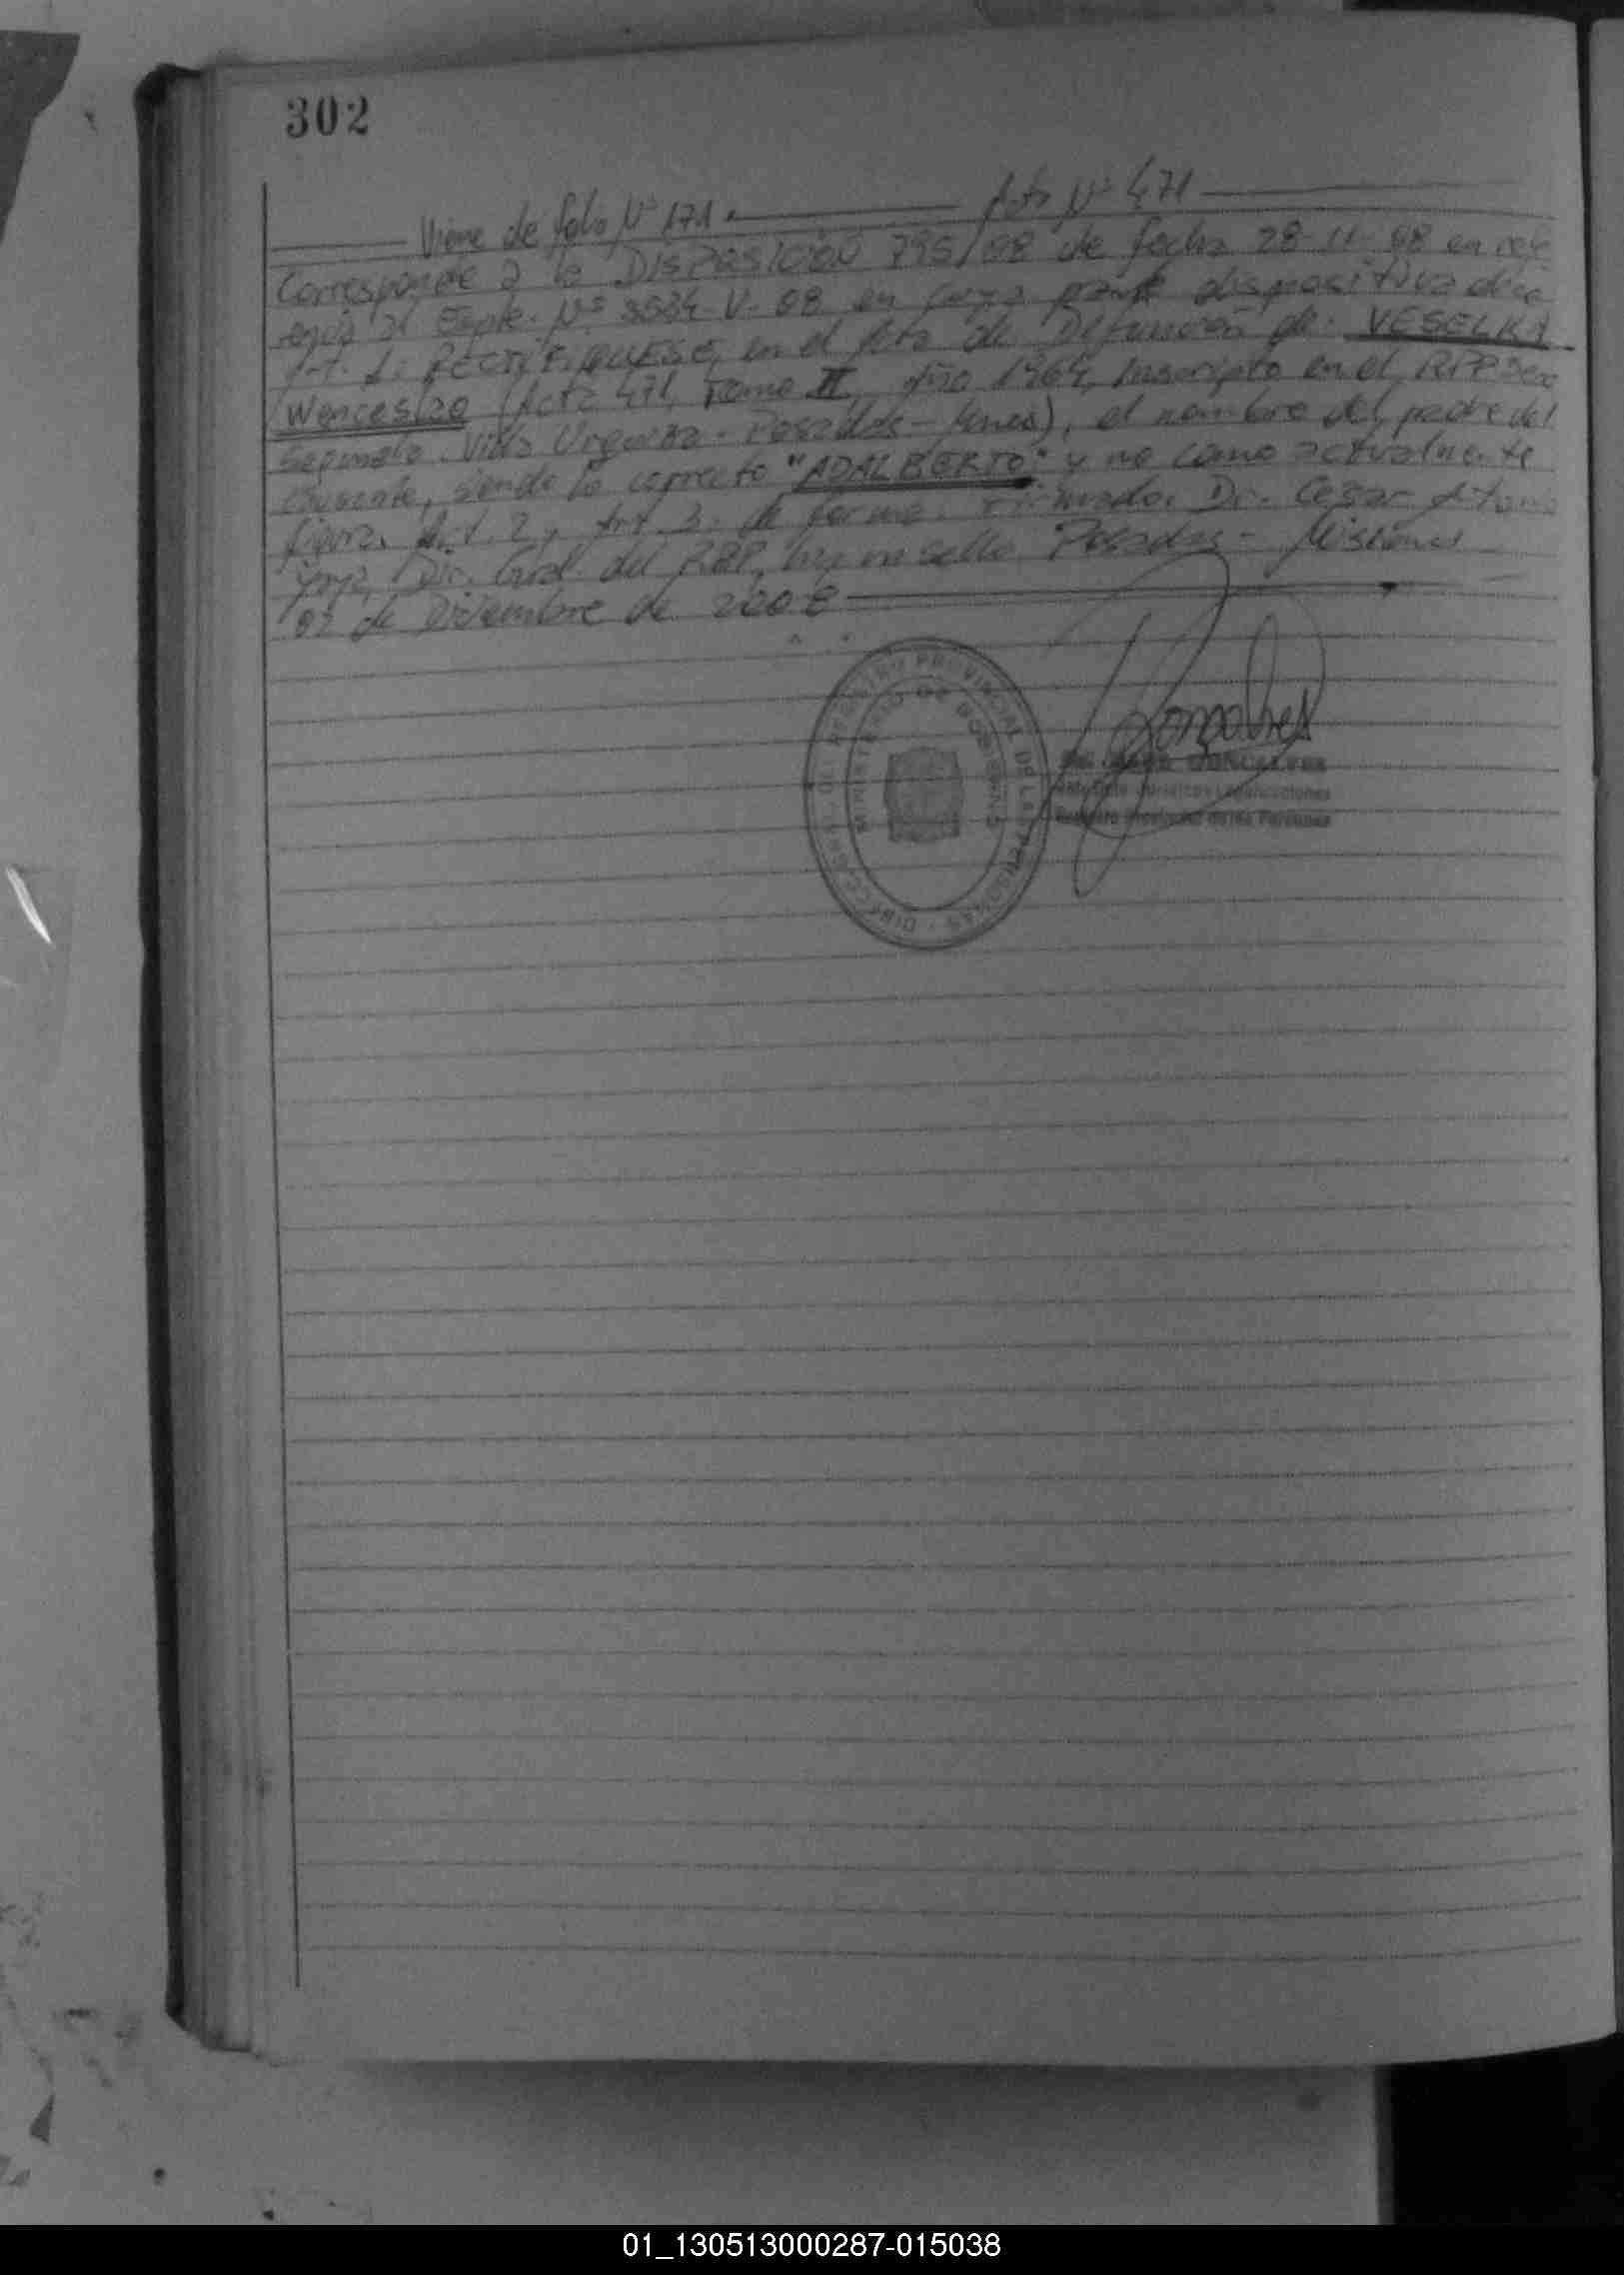 302
Viene de folio Nº 171. Acta Nº 471
Corresponde a la DISPOSICIÓN 795/08 de fecha 28-11-08 en refe
rencia al Expte. Nº 3534-V-08 en cuya parte dispositiva dice
Art. 1: RECTIFIQUESE, en el Acta de Defunción de: VESELKA
Wenceslao (Acta 471, Tomo II, Año 1964, Inscripto en el RPP Secc
Segunda. Villa Urquiza - Posadas - Mnes), el nombre del padre del
causante, siendo lo correcto "ADALBERTO" y no como actualmente
figura. Art. 2, Art 3. de forma. Firmado. Dr. Cesar
Dir. Gral. del RPP, hay un sello Posadas - Misiones
02 de Diciembre de 2008
DIRECC. GRAL. DEL REGISTRO PROVINCIAL DE LAS PERSONAS
MINISTERIO DE GOBIERNO
Gonçalves
GONCALVES
Registro Provincial de las Personas
01_130513000287-015038